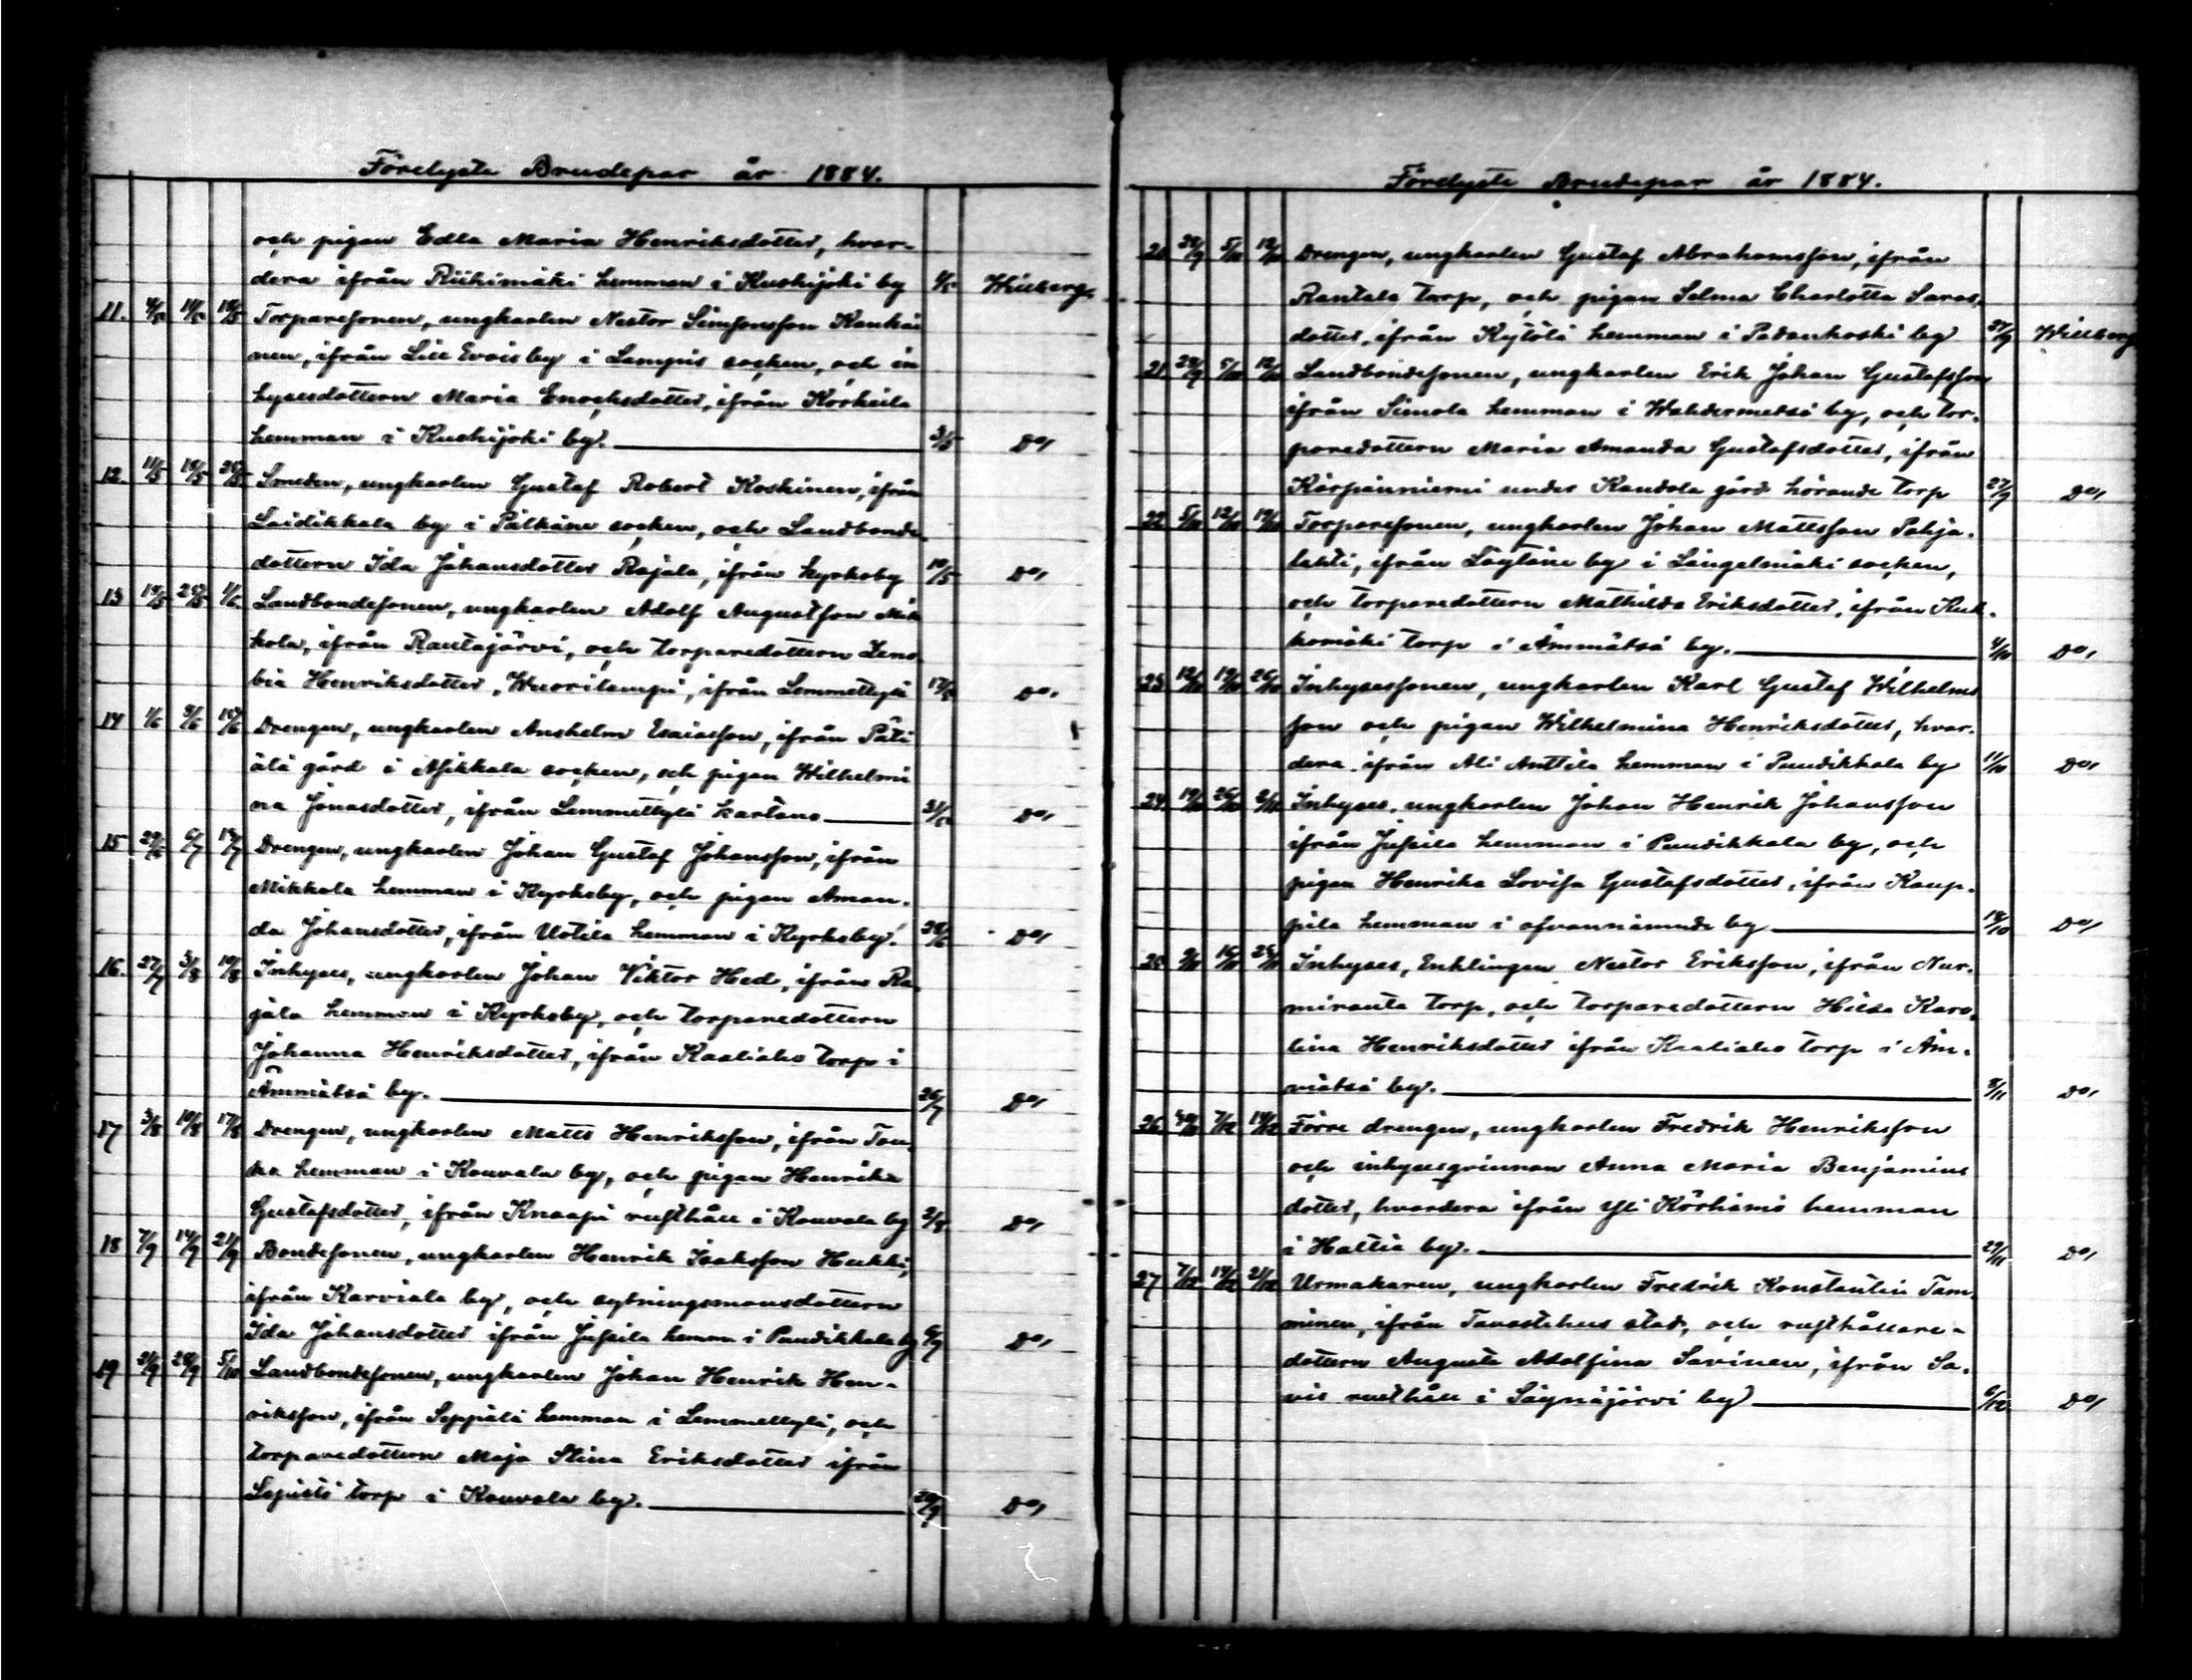 Förelyste Brudepar år 1884.
och pigan Edla Maria Henriksdotter, hvar-
dera ifrån Riihimäki hemman i Kuohijoki by Willberg
11. 4/5 11/5 18/5 Torparesonen, ungkarlen Nestor Simsonsson Kankäi
nen, ifrån Lill Evois by i Lampis socken, och in
hysesdottern Maria Enochsdotter, ifrån Korkeila
hemman i Kuohijoki by. 3/5 Do,
12. 11/5 18/5 25/5 Smeden, ungkarlen Gustaf Robert Koskinen, ifrån
Laidikkala by i Pälkäne socken, och Landbonde-
dottern Ida Johansdotter Rajala, ifrån kyrkoby 10/5 Do,
13 18/5 25/5 1/6 Landbondesonen, ungkarlen Adolf Augustsson Mik
kola, ifrån Rautajärvi, och torparedottern Zeno
bia Henriksdotter, Wuorilampi, ifrån Lemmettylä 17/5 Do,
14 1/6 8/6 15/6 Drengen, ungkarlen Anshelm Esaiasson, ifrån Päti
älä gård i Asikkala socken, och pigan Wilhelmi
na Jonasdotter, ifrån Lemmettylä kartano 31/5 Do,
15 29/6 6/7 13/7 Drengen, ungkarlen Johan Gustaf Johansson, ifrån
Mikkola hemman i Kyrkoby, och pigan Aman-
da Johansdotter, ifrån Uotila hemman i Kyrkoby. 28/6 Do,
16. 27/7 3/8 10/8 Inhyses, ungkarlen Johan Viktor Hed, ifrån Ra-
jala hemman i Kyrkoby, och torparedottern
Johanna Henriksdotter, ifrån Kaaliaho torp i
Ämmätsä by. 26/7 Do,
17 3/8 10/8 17/8 Drengen, ungkarlen Matts Henriksson, ifrån
hemman i Kouvala by, och pigan Henrika
Gustafsdotter, ifrån Knaapi rusthåll i Kouvala by 2/8 Do,
18 7/9 14/9 21/9 Bondesonen, ungkarlen Henrik Isaksson Heikki,
ifrån Karviala by, och sytningsmansdottern
Ida Johansdotter ifrån Jussila hemm i Puudikkala by 6/9 Do,
19 21/9 28/9 5/10 Landbondesonen, ungkarlen Johan Henrik Hen-
riksson, ifrån Seppälä hemman i Lemmettylä, och
torparedottern Maja Stina Eriksdotter ifrån
torp i Kouvala by. 20/9 Do,
Förelyste Brudepar år 1884.
20 28/9 5/10 12/10 Drengen, ungkarlen Gustaf Abrahamsson, ifrån
Rantala torp, och pigan Selma Charlotta Saras-
dotter, ifrån Kytölä hemman i Padankoski by 27/9 Willberg
21 28/9 5/10 12/10 Landbondesonen, ungkarlen Erik Johan Gustafsson
ifrån Simola hemman i Wahdermetsä by, och tor-
paredottern Maria Amanda Gustafsdotter, ifrån
Kärpänniemi under Kandola gård hörande torp 27/9 Do,
22 5/10 12/10 19/10 Torparesonen, ungkarlen Johan Mattsson Pohja-
lahti, ifrån Löytäne by i Längelmäki socken,
och torparedottern Mathilda Eriksdotter, ifrån Kuk-
komäki torp i Ämmätsä by. 4/10 Do,
23 12/10 19/10 26/10 Inhysessonen, ungkarlen Karl Gustaf Wilhelms
son och pigan Wilhelmina Henriksdotter, hvar-
dera ifrån Ali Anttila hemman i Puudikkala by 11/10 Do,
24 19/10 26/10 2/11 Inhyses, ungkarlen Johan Henrik Johansson
ifrån Jussila hemman i Puudikkala by, och
pigan Henrika Lovisa Gustafsdotter, ifrån Kaup-
pila hemman i ofvannämnde by 18/10 Do,
25 9/11 16/11 23/11 Inhyses, Enklingen Nestor Eriksson, ifrån Nur-
miranta torp, och torparedottern Hilda Karo-
lina Henriksdotter ifrån Kaaliaho torp i Äm-
mätsä by. 8/11 Do,
26 30/11 7/12 14/12 Förre drengen, ungkarlen Fredrik Henriksson
och inhysesqvinnan Anna Maria Benjamins
dotter, hvardera ifrån Yli Körhämö hemman
i Hattia by. 29/11 Do,
27 7/12 14/12 21/12 Urmakaren, ungkarlen Fredrik Konstantin Tam-
minen, ifrån Tavastehus stad, och rusthållare-
dottern Augusta Adolfina Savinen, ifrån Sa-
vis rusthåll i Säynäjärvi by 6/12 Do,